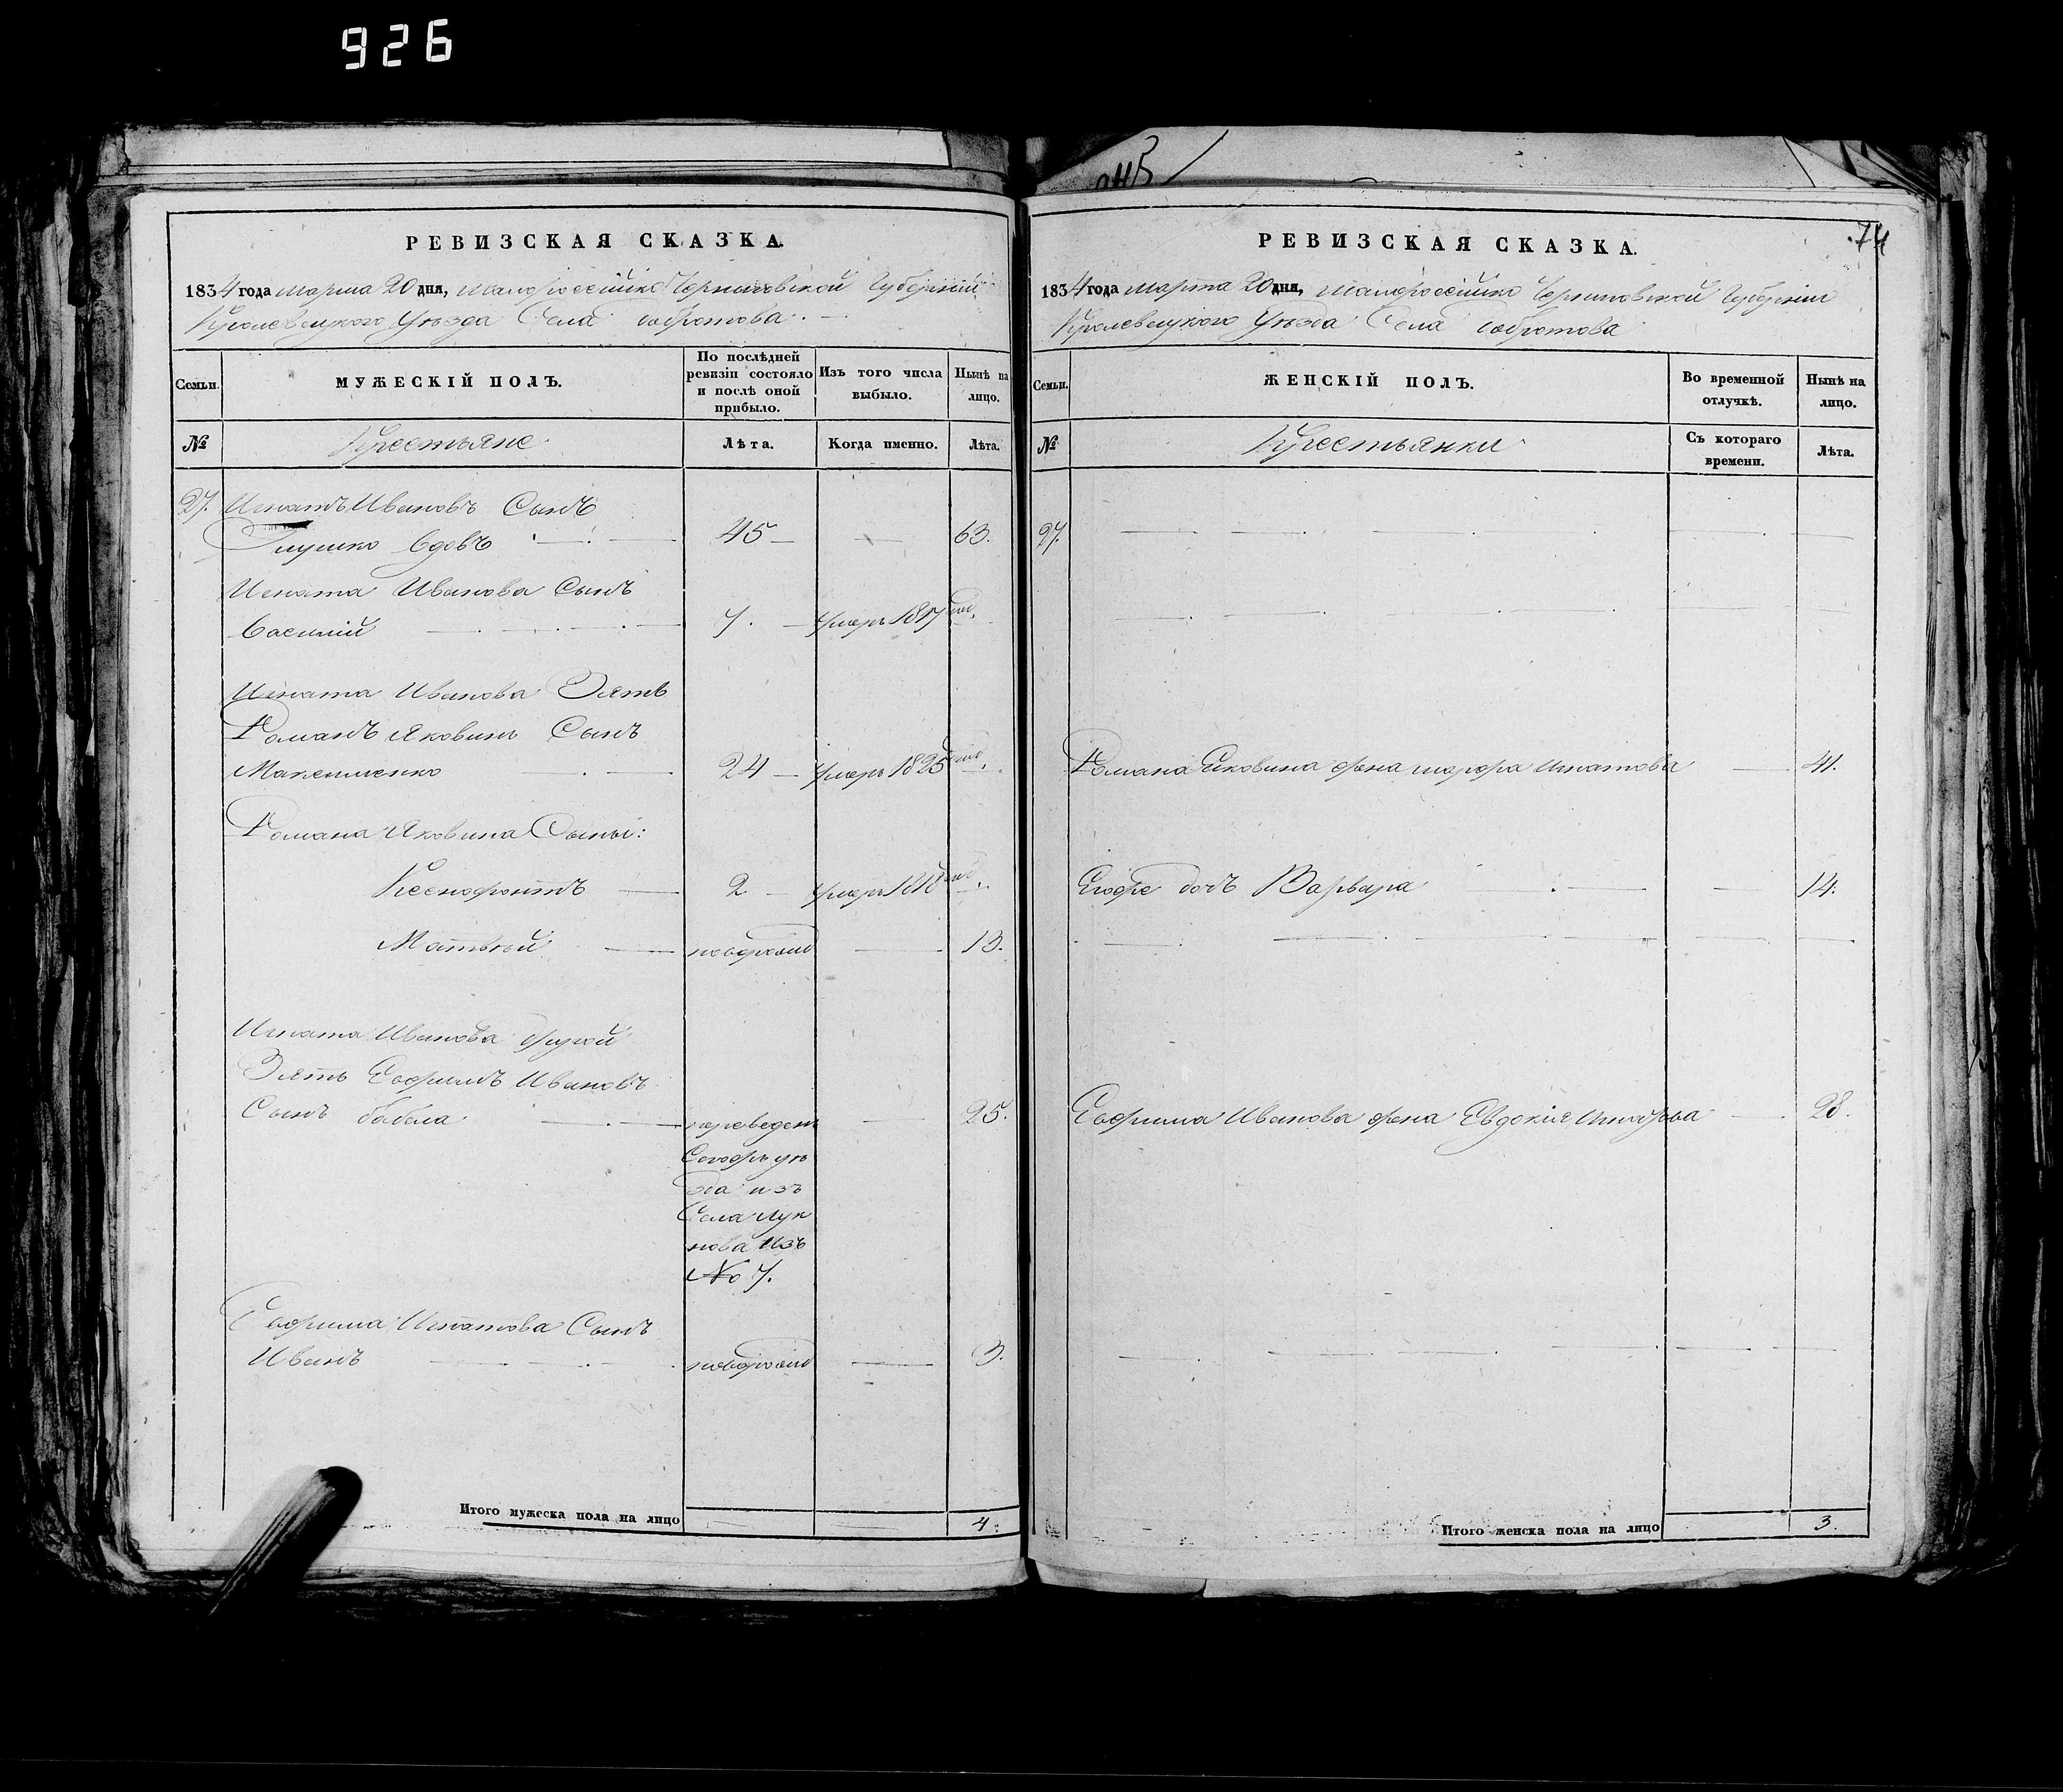 926
РЕВИЗСКАЯ СКАЗКА.
1834 года марта 20 дня, Малороссійско Черниговской Губерніи
Кролевецкого Уѣзда Села
Семьи.
МУЖЕСКІЙ ПОЛЪ.
По послѣдней ревизіи состояло и послѣ оной прибыло.
Изъ того числа выбыло.
Нынѣ на лицо.
№
Крестьяне
Лѣта.
Когда именно.
Лѣта.
27. Игнатъ Ивановъ Сынъ
Глушко вдовъ 45 63.
Игната Иванова Сынъ
Василій 7. умеръ 1817
Игната Иванова Зять
Романъ Яковинъ Сынъ
24 умеръ 1825
Романа Яковина Сыны:
Ксенофонтъ 2 умеръ 1818
Матвѣй новорожд 13.
Игната Иванова другой
Зять Евфимъ Ивановъ
Сынъ переведен 25.
уѣ
зда изъ
Села
изъ
№ 7.
Евфима Игнатова Сынъ
Иванъ новорожд 3.
Итого мужеска пола на лицо 4.
74
РЕВИЗСКАЯ СКАЗКА.
1834 года марта 20 дня, Малороссійско Черниговской Губерніи
Кролевецкого Уѣзда Села
Семьи.
ЖЕНСКІЙ ПОЛЪ.
Во временной отлучкѣ.
Нынѣ на лицо.
№
Крестьянки
Съ котораго времени.
Лѣта.
27.
Романа Яковина жена Марфа Игнатова 41.
Егоже дочь Варвара 14.
Евфима Иванова жена Евдокія Игнатова 28.
Итого женска пола на лицо 3.